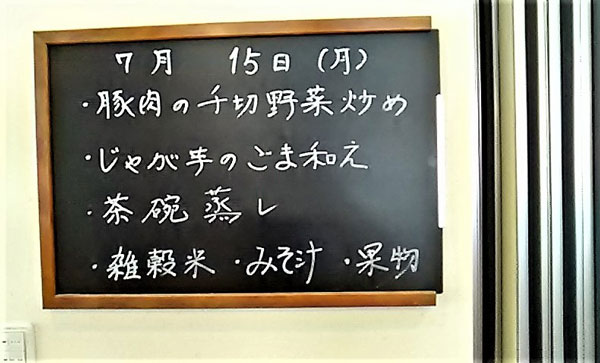 7月 15日(月)
・豚肉の千切野菜炒め
・じゃが芋のごま和え
・茶碗蒸し
・雑穀米 ・みそ汁 ・果物